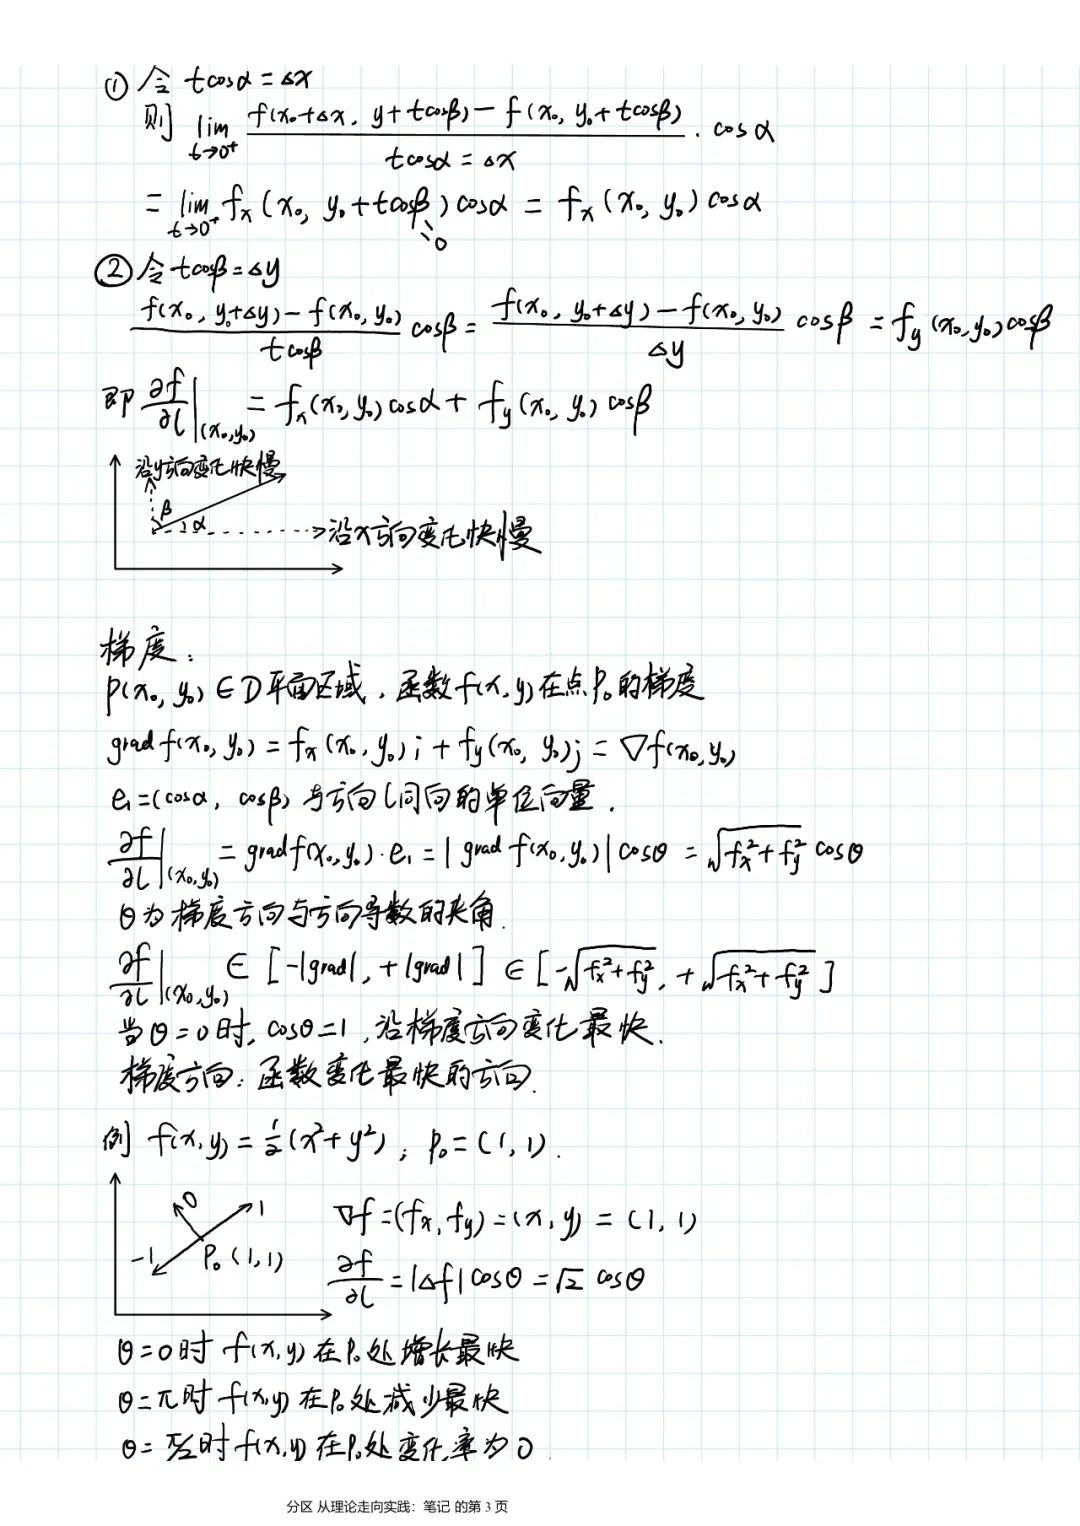 ① 令 tcosα = Δx
则 lim t→0⁺ f(x₀+Δx, y+tcosβ) − f(x₀, y₀+tcosβ) / tcosα = Δx · cosα
= lim t→0⁺ fₓ(x₀, y₀+tcosβ) cosα = fₓ(x₀, y₀) cosα
0
② 令 tcosβ = Δy
f(x₀, y₀+Δy) − f(x₀, y₀) / tcosβ cosβ = f(x₀, y₀+Δy) − f(x₀, y₀) / Δy cosβ = f_y(x₀, y₀) cosβ
即 ∂f/∂l |(x₀,y₀) = fₓ(x₀, y₀) cosα + f_y(x₀, y₀) cosβ
沿y方向变化快慢
β
α
沿x方向变化快慢
梯度:
P(x₀, y₀) ∈ D平面区域, 函数 f(x,y) 在点P₀的梯度
grad f(x₀, y₀) = fₓ(x₀, y₀) i + f_y(x₀, y₀) j = ∇f(x₀, y₀)
e₁ = (cosα, cosβ) 与方向l同向的单位向量.
∂f/∂l |(x₀,y₀) = grad f(x₀, y₀) · e₁ = |grad f(x₀, y₀)| cosθ = √(fₓ²+f_y²) cosθ
θ为梯度方向与方向导数的夹角.
∂f/∂l |(x₀,y₀) ∈ [−|grad|, +|grad|] ∈ [−√(fₓ²+f_y²), +√(fₓ²+f_y²)]
当θ=0时, cosθ=1, 沿梯度方向变化最快.
梯度方向: 函数变化最快的方向.
例 f(x,y) = ½(x²+y²), P₀ = (1,1).
0
1
−1
P₀(1,1)
∇f = (fₓ, f_y) = (x, y) = (1, 1)
∂f/∂l = |Δf| cosθ = √2 cosθ
θ=0时 f(x,y) 在P₀处增长最快
θ=π时 f(x,y) 在P₀处减少最快
θ=π/2时 f(x,y) 在P₀处变化率为0.
分区 从理论走向实践：笔记 的第 3 页